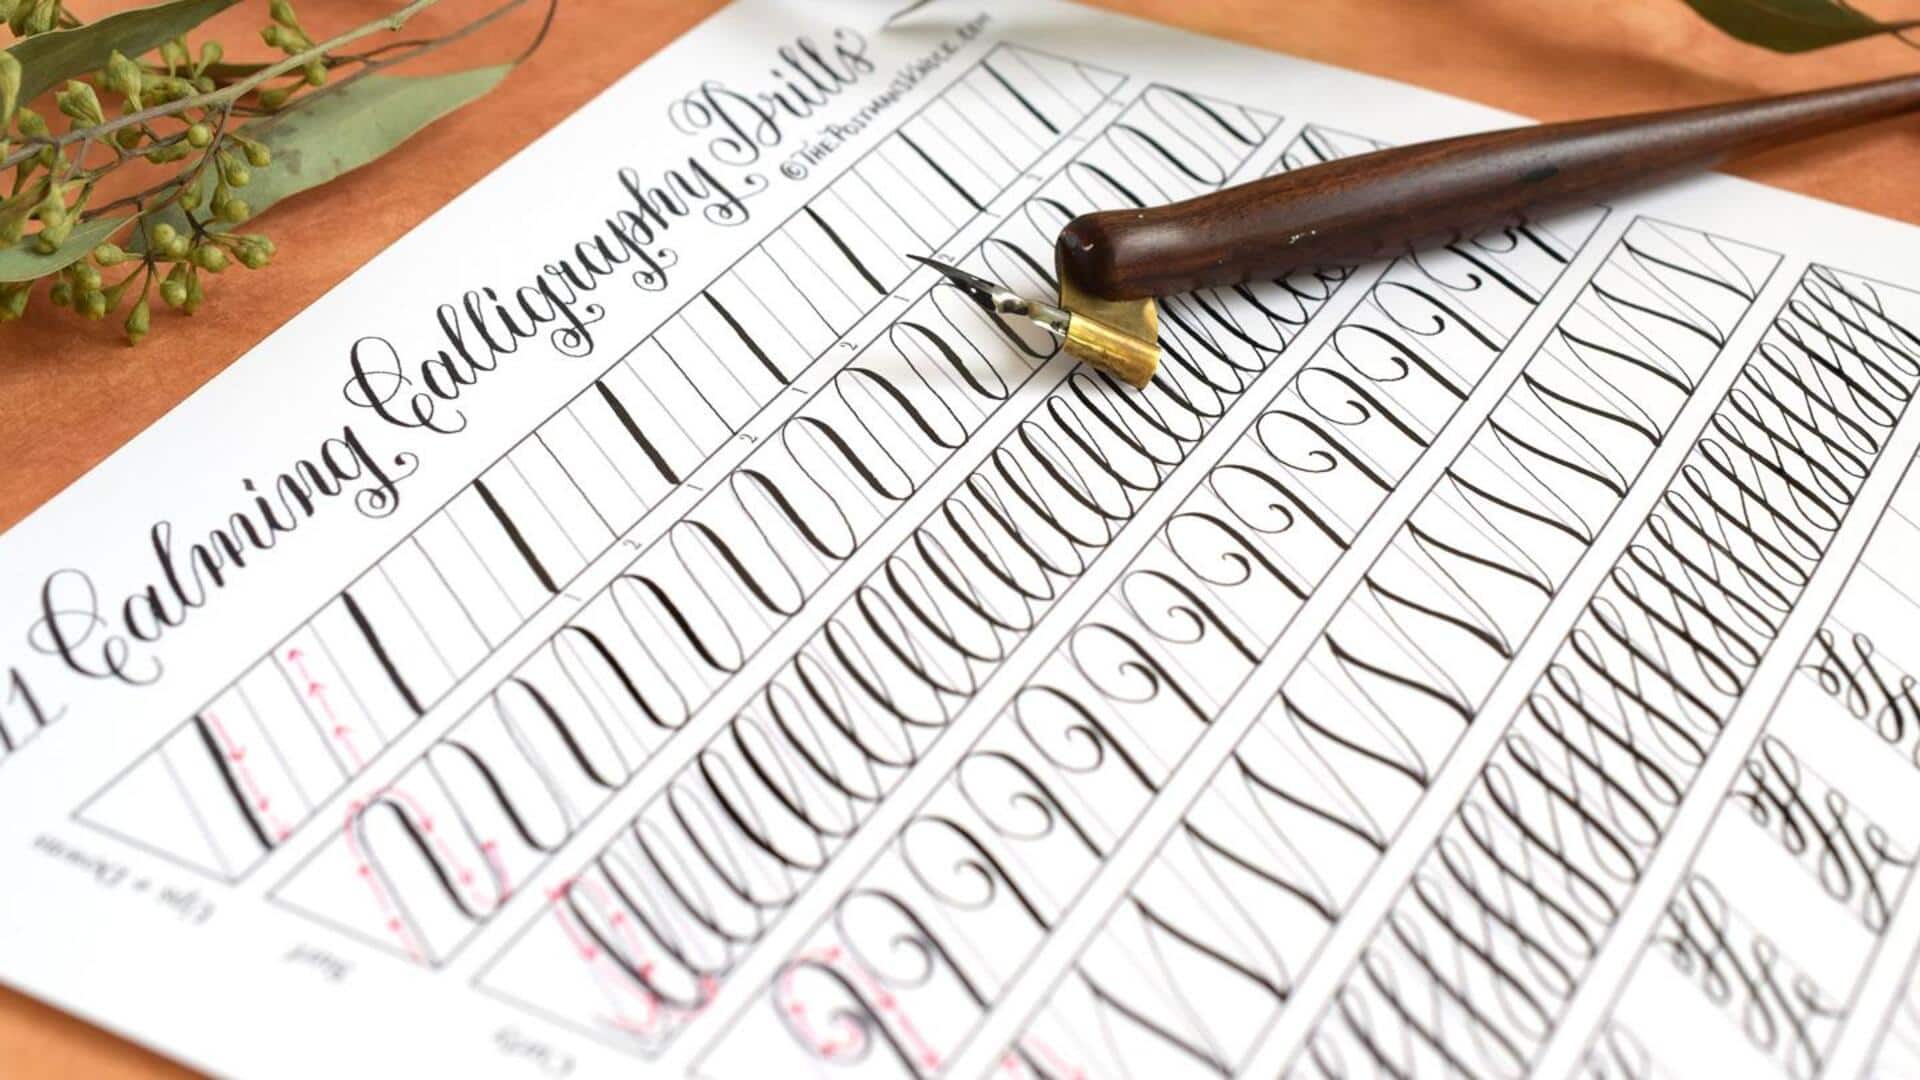 11 Calming Calligraphy Drills
© THE POSTMAN'S KNOCK.COM
1 2 1 2 1 2 1 2 1
Ups + Downs
Surf
Curls